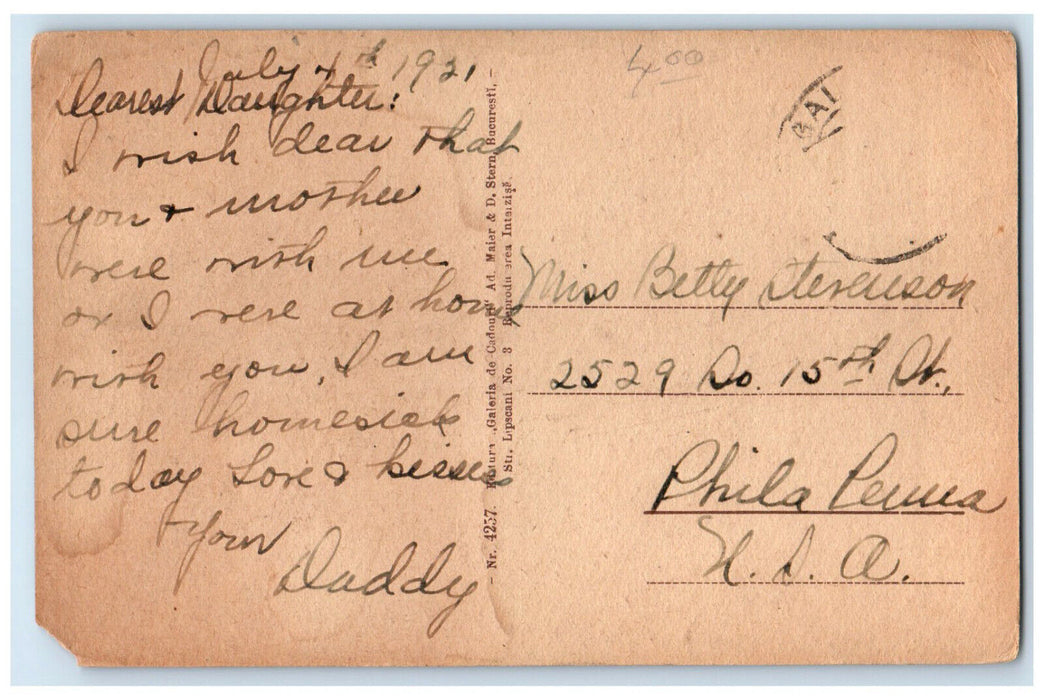 July 4th 1921
Dearest Daughter:
I wish dear that
you & mother
were with me
or I were at home
with you, I am
sure homesick
today Love & kisses
Your
Daddy
- Nr. 4257. Editura „Galeria de Cadouri" Ad. Maier & D. Stern, Bucuresti, -
Str. Lipscani No. 3 Reproducerea Interzisă.
4 00
BAI
Miss Betty Stevenson
2529 So. 15th St.,
Phila Penna
U. S. A.